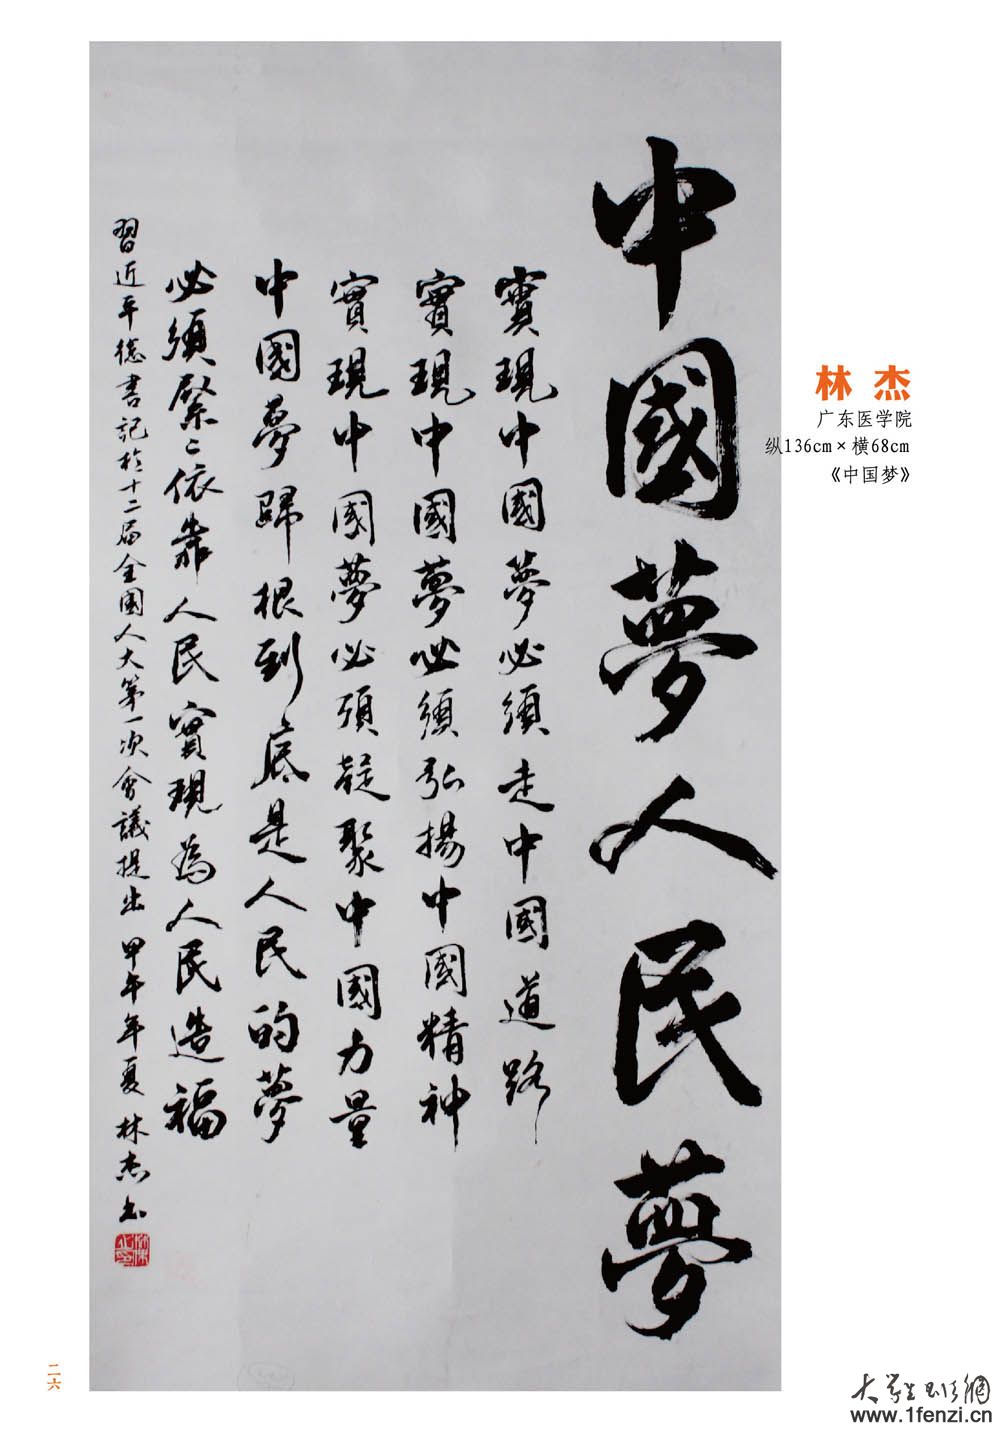 中國夢人民夢
實現中國夢必須走中國道路
實現中國夢必須弘揚中國精神
實現中國夢必須凝聚中國力量
中國夢歸根到底是人民的夢
必須緊〻依靠人民實現為人民造福
習近平總書記於十二屆全國人大第一次會議提出 甲午年夏 林杰书
林杰
广东医学院
纵136cm×横68cm
《中国梦》
二六
大学生书法網
www.1fenzi.cn